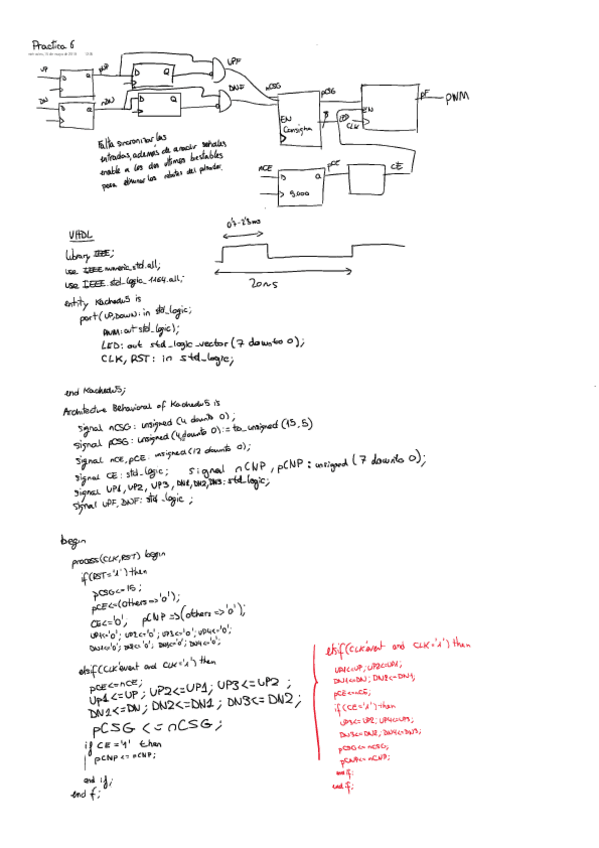 Practica 6
UP
nUP
D
Q
D
Q
UPF
DN
D
Q
nDN
D
Q
DNF
nCSG
pCSG
EN
Consigna
EN
CLK
pF
PWM
Falta sincronizar las
entradas, además de anadir señales
enable a los dos ultimos biestables
para eliminar los rebotes del pulsador.
nCE
D
Q
9.000
pCE
CE
VHDL
library IEEE;
use IEEE.numeric_std.all;
use IEEE.std_logic_1164.all;
20ms
entity Kachedu5 is
port(UP,DOWN: in std_logic;
PWM:out std_logic);
LED: out std_logic_vector(7 downto 0);
CLK, RST: in std_logic;
end Kachedu5;
Architecture Behavioral of Kachedu5 is
signal nCSG: unsigned(4 downto 0);
signal pCSG: unsigned(4 downto 0):=to_unsigned(15,5)
signal nCE,pCE: unsigned(12 downto 0);
signal CE: std_logic; signal nCNP, pCNP: unsigned(7 downto 0);
signal UP1, UP2, UP3, DN1,DN2,DN3: std_logic;
signal UPF, DNF: std_logic;
begin
process(CLK,RST) begin
if(RST='1')then
pCSG<=15;
pCE<=(others=>'0');
CE<='0'; pCNP=>(others=>'0');
UP1<='0'; UP2<='0'; UP3<='0'; UP4<='0';
DN1<='0'; DN2<='0'; DN3<='0'; DN4<='0';
elsif(CLK'event and CLK='1') then
pCE<=nCE;
UP1<=UP; UP2<=UP1; UP3<=UP2;
DN1<=DN; DN2<=DN1; DN3<=DN2;
pCSG<=nCSG;
if CE='1' then
pCNP<=nCNP;
end if;
end f;
elsif(CLK'event and CLK='1')then
UP1<=UP; UP2<=UP1;
DN1<=DN; DN2<=DN1;
pCE<=nCE;
if(CE='1')then
UP3<=UP2; UP4<=UP3;
DN3<=DN2; DN4<=DN3;
pCSG<=nCSG;
pCNP<=nCNP;
end if;
end if;